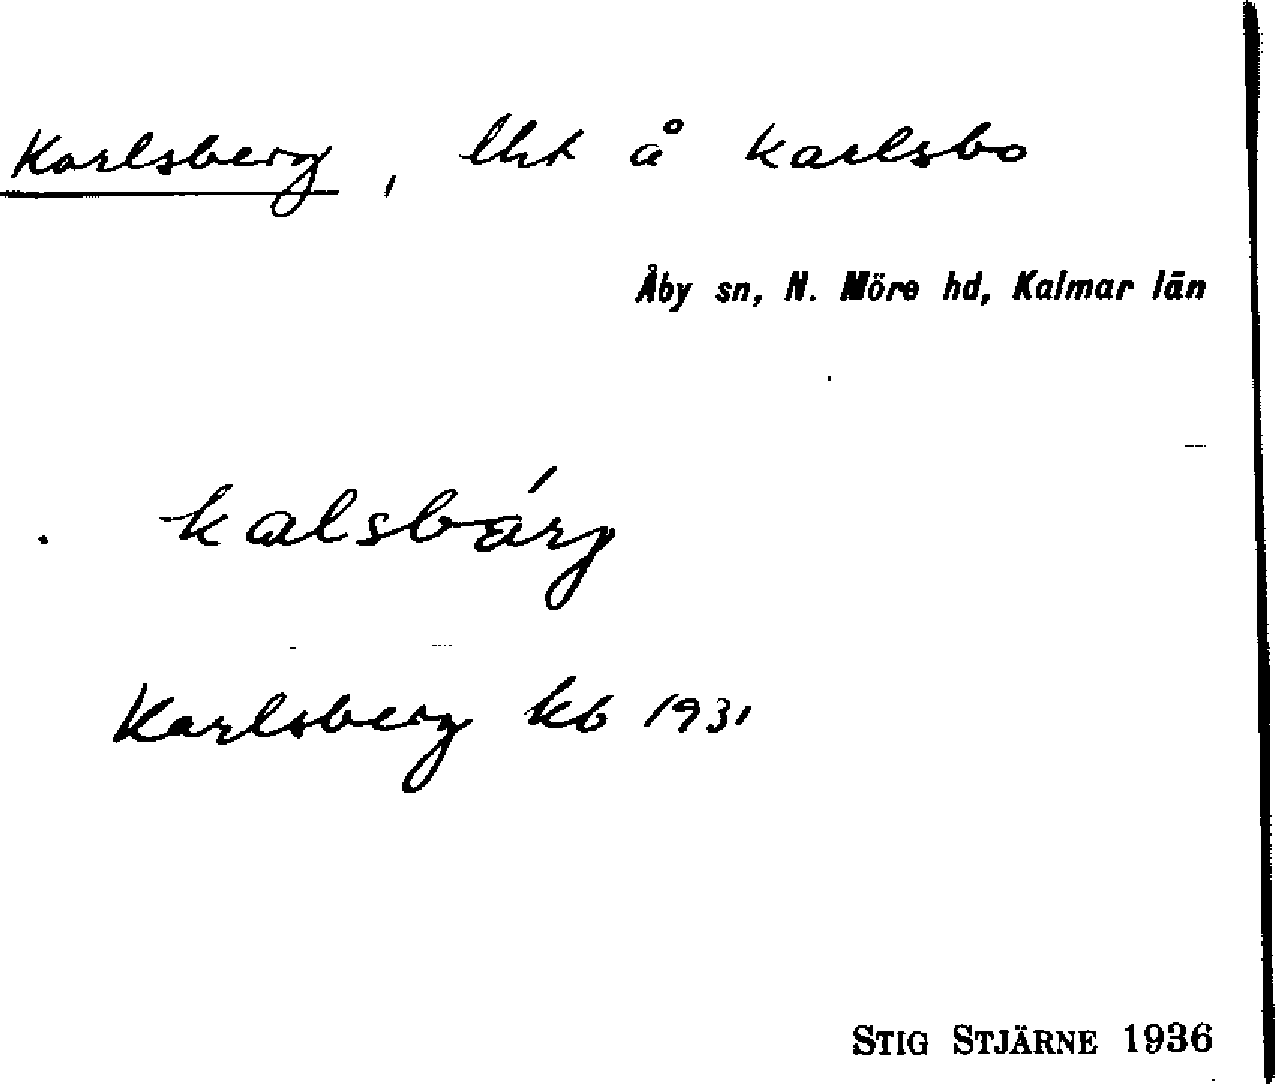 Karlsberg, lht å Karlsbo
Åby sn, N. Möre hd, Kalmar län
kalsbárj
Karlsberg kb 1931
STIG STJÄRNE 1936